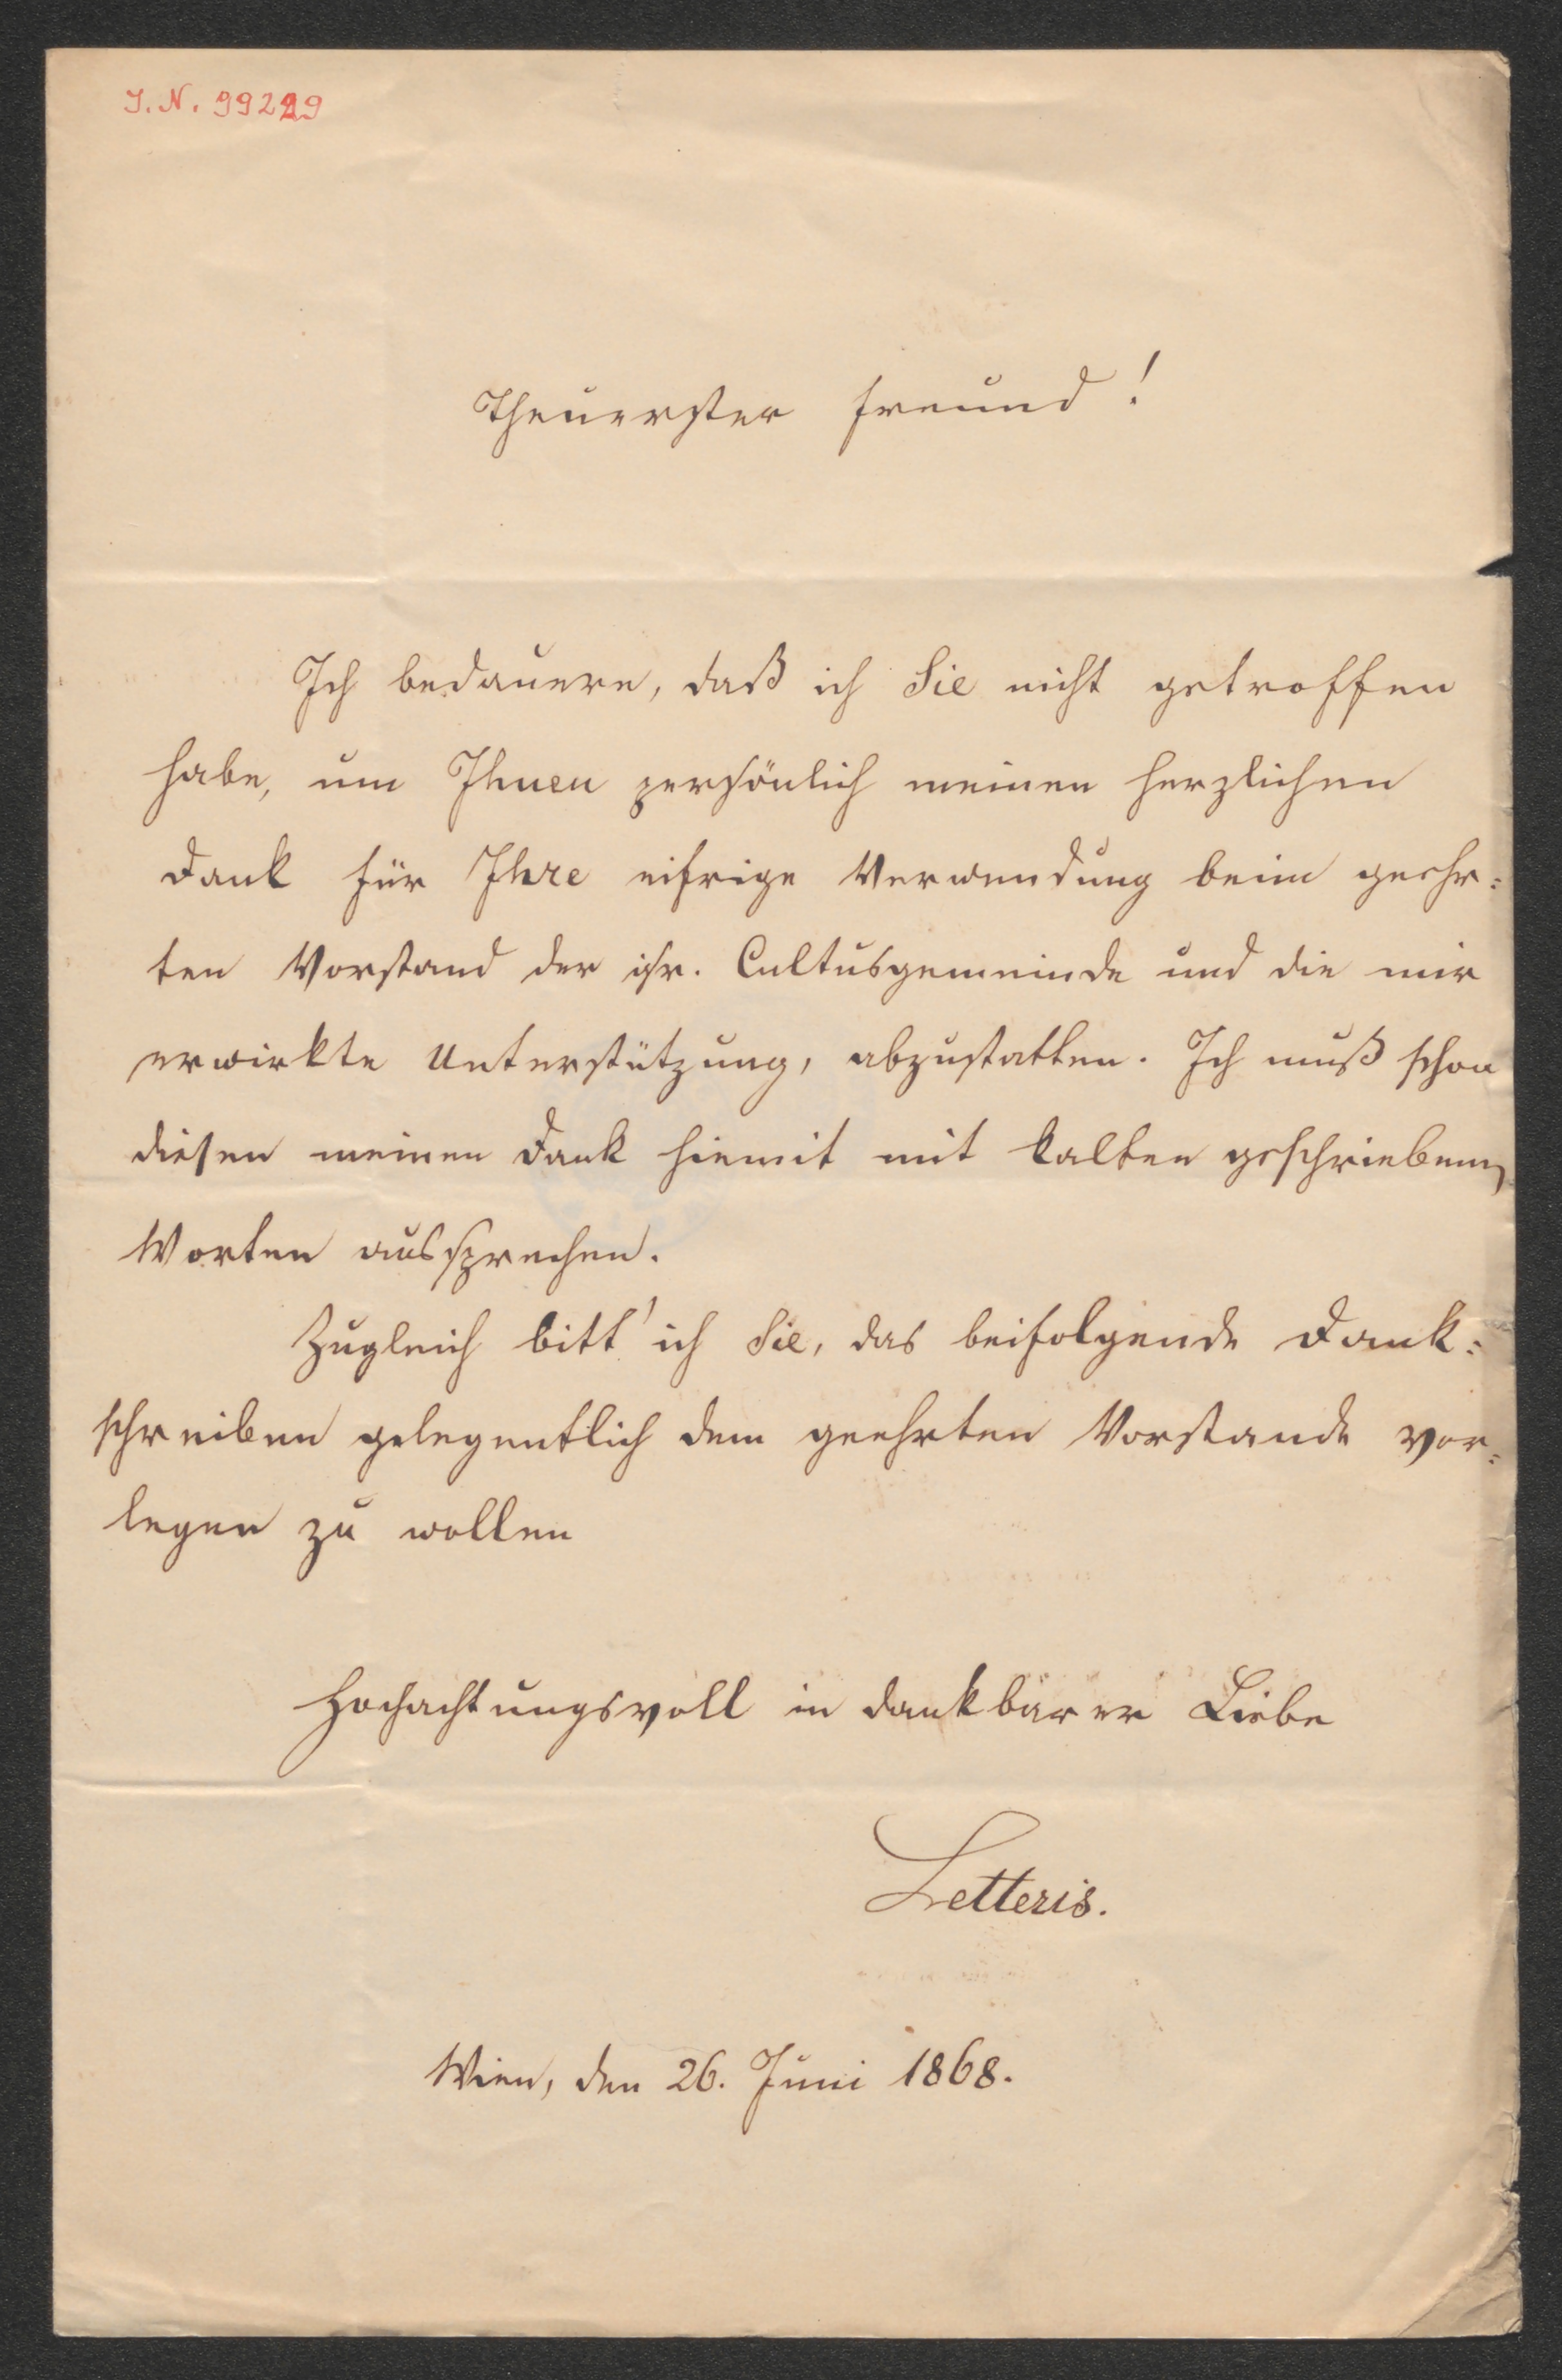 J. N. 99229
Theuerster Freund!
Ich bedauere, daß ich Sie nicht getroffen
habe, um Ihnen persönlich meinen herzlichen
Dank für Ihre eifrige Verwendung beim geehr=
ten Vorstand der isr. Cultusgemeinde und die mir
erwirkte Unterstützung, abzustatten. Ich muß schon
diesen meinen Dank hiemit mit kalten geschriebenen
Worten aussprechen.
Zugleich bitt' ich Sie, das beifolgende Dank=
schreiben gelegentlich dem geehrten Vorstande vor=
legen zu wollen
Hochachtungsvoll in dankbarer Liebe
Letteris.
Wien, den 26. Juni 1868.